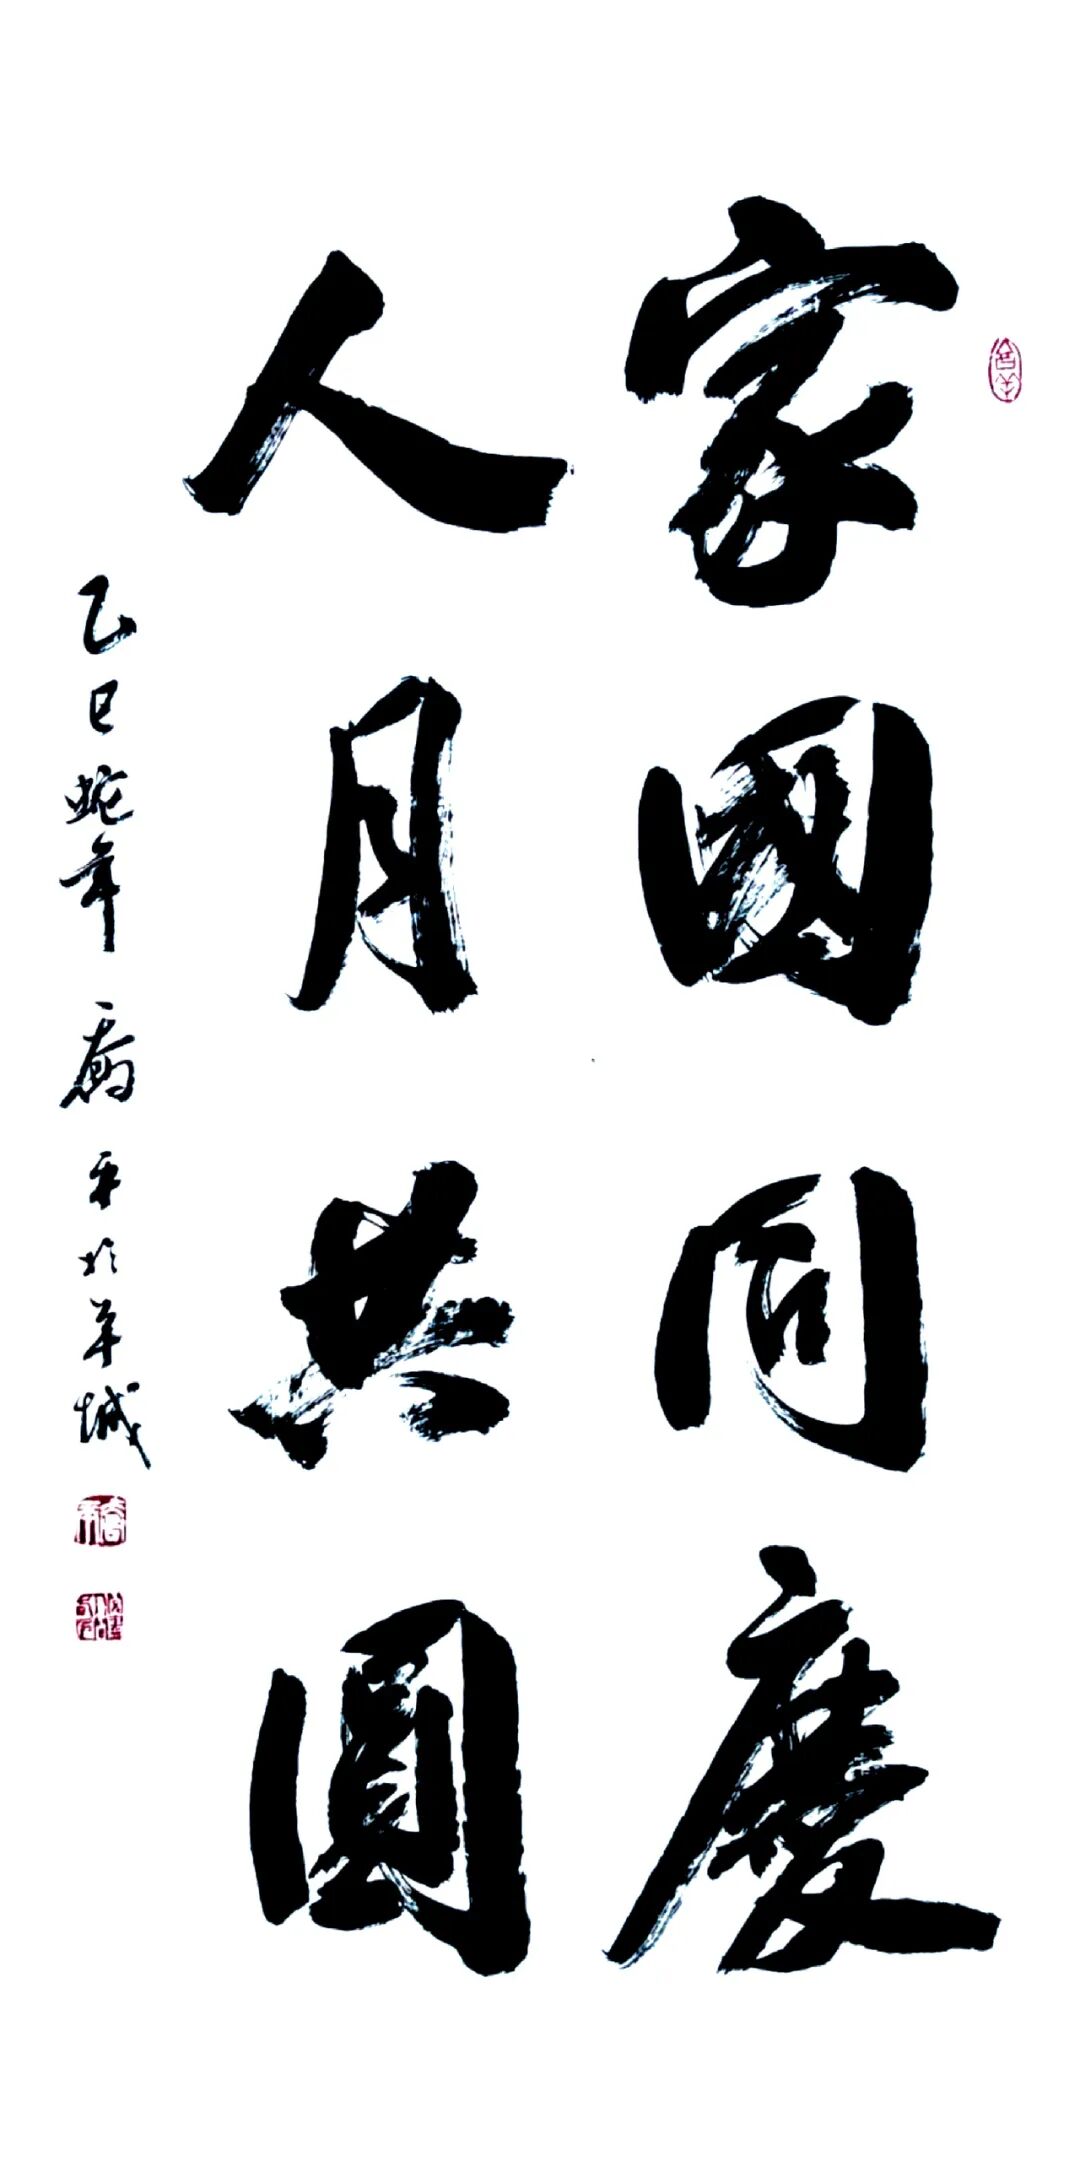 家國同慶
人月共圓
乙巳蛇年喬平於羊城